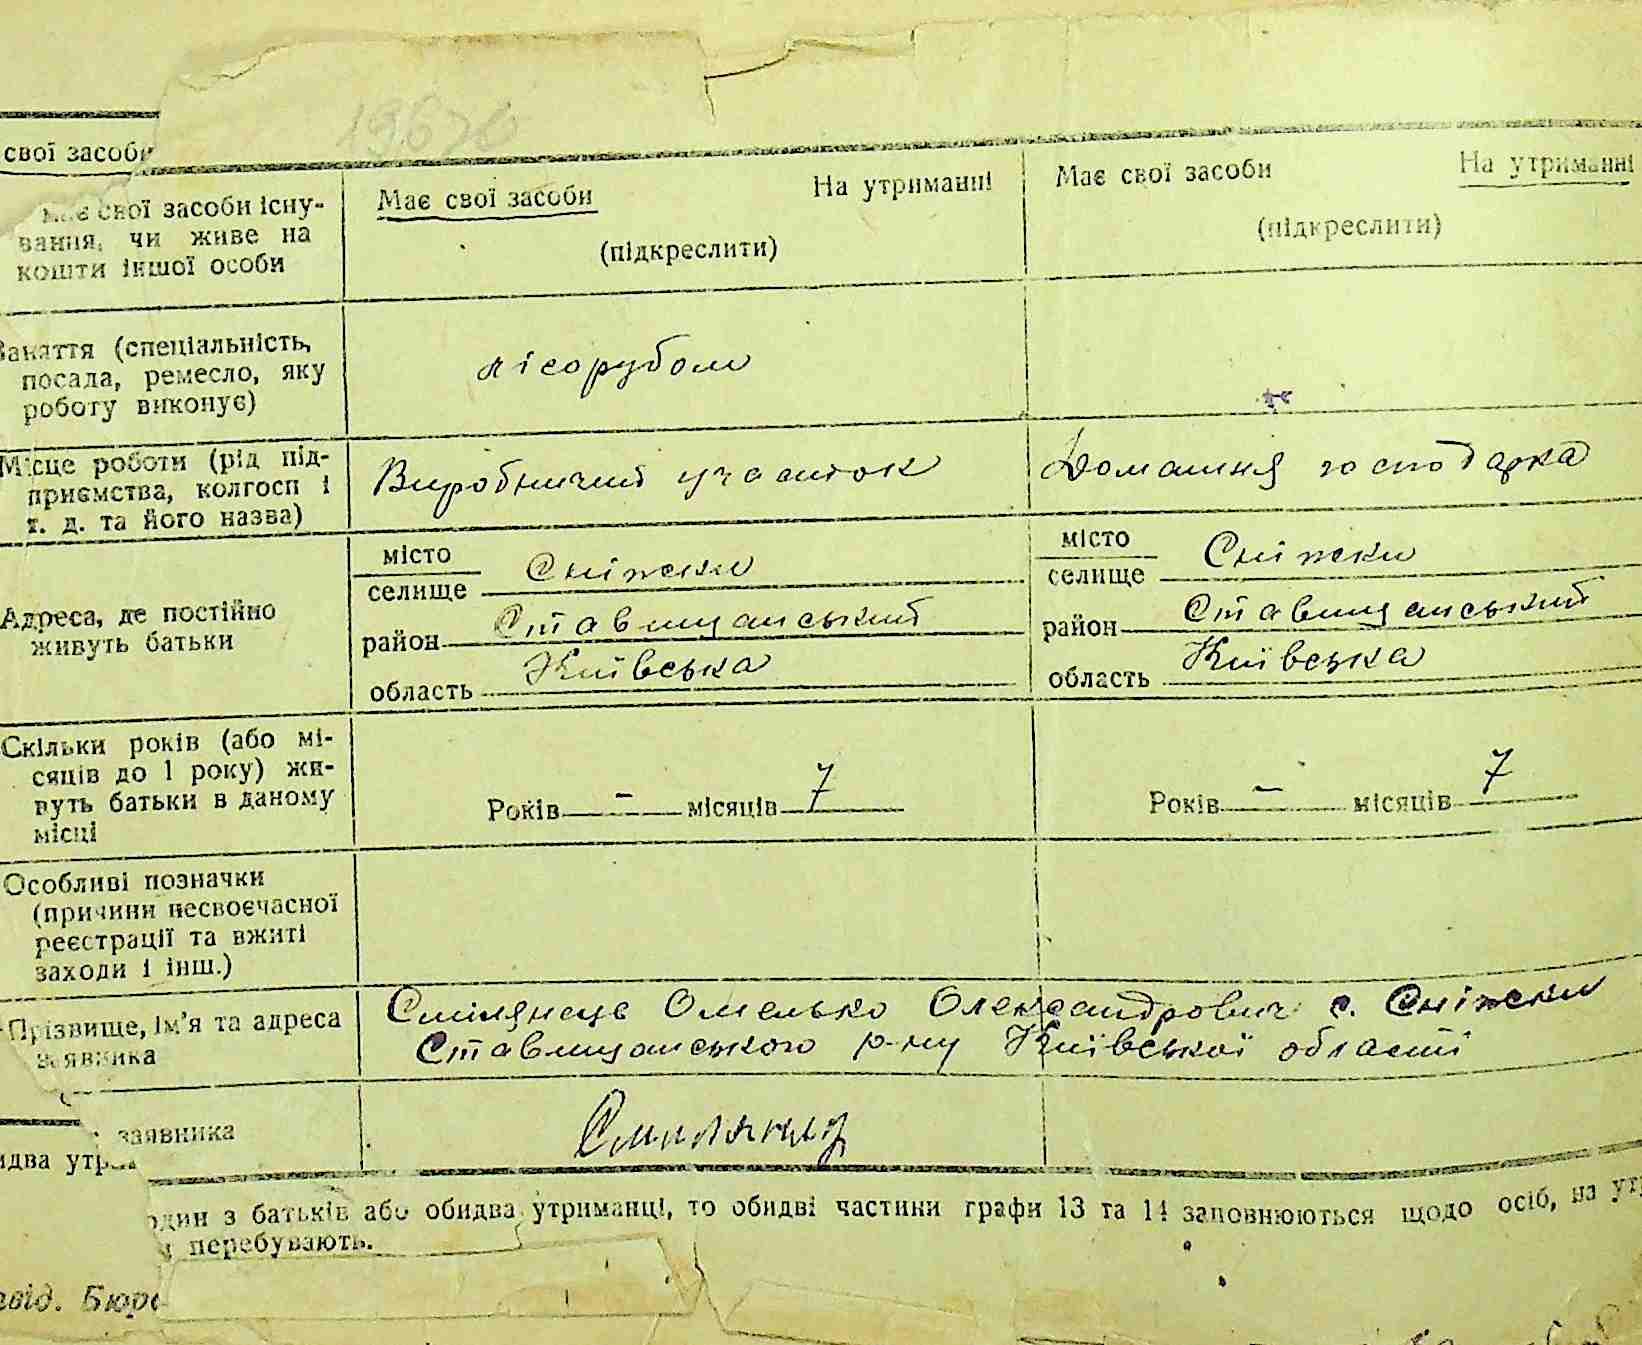 свої засоби
має свої засоби існу-
вання, чи живе на
кошти іншої особи
Має свої засоби На утриманні
(підкреслити)
Має свої засоби На утриманні
(підкреслити)
Заняття (спеціальність,
посада, ремесло, яку
роботу виконує)
лісорубом
Місце роботи (рід під-
приємства, колгосп і
т. д. та його назва)
Виробничий участок
Домашня господарка
Адреса, де постійно
живуть батьки
місто
селище Сніжки
район Ставищанський
область Київська
місто
селище Сніжки
район Ставищанський
область Київська
Скільки років (або мі-
сяців до 1 року) жи-
вуть батьки в даному
місці
Років - місяців 7
Років - місяців 7
Особливі позначки
(причини несвоєчасної
реєстрації та вжиті
заходи і інш.)
Прізвище, ім'я та адреса
заявника
Смілянець Омелько Олександрович с. Сніжки
Ставищанського р-ну Київської області
заявника
один з батьків або обидва утриманці, то обидві частини графи 13 та 14 заповнюються щодо осіб, на
перебувають.